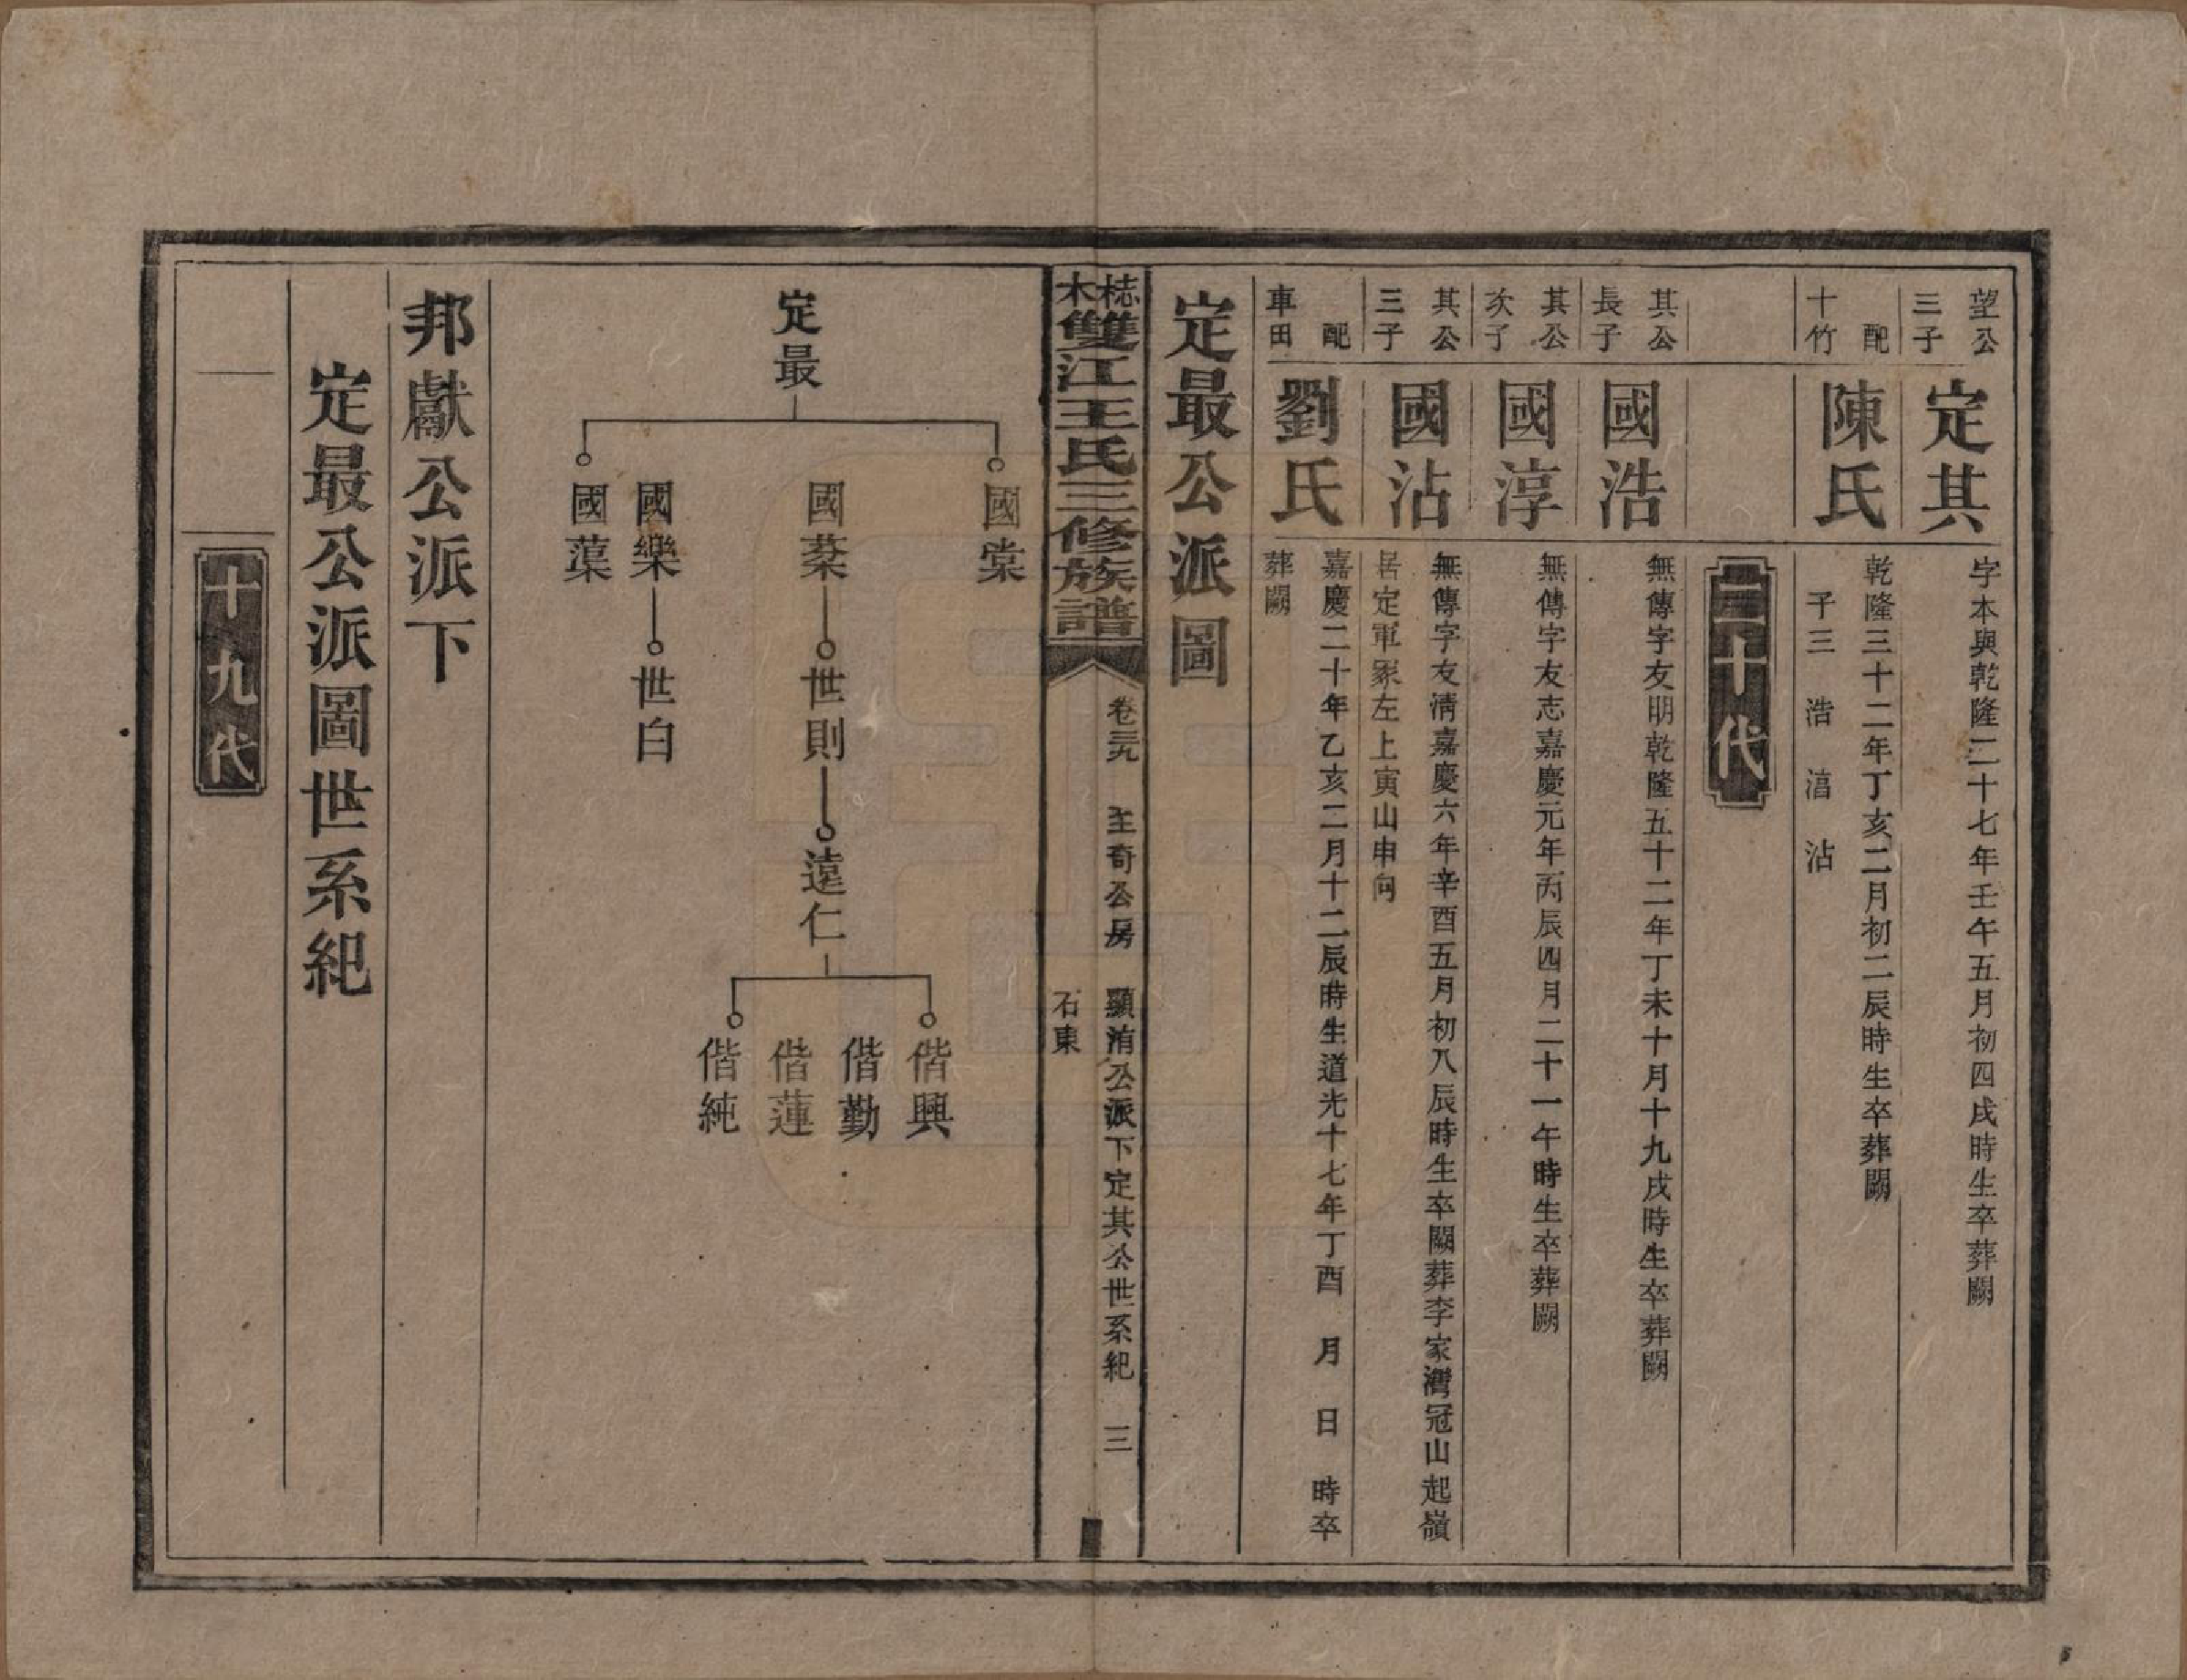 望公三子
定其
字本興乾隆二十七年壬午五月初四戌時生卒葬闕
配十竹
陳氏
乾隆三十二年丁亥二月初二辰時生卒葬闕
子三　浩　湻　沾
二十代
其公長子
國浩
無傳字友明乾隆五十二年丁未十月十九戌時生卒葬闕
其公次子
國淳
無傳字友志嘉慶元年丙辰四月二十一午時生卒葬闕
其公三子
國沾
無傳字友清嘉慶六年辛酉五月初八辰時生卒闕葬李家灣冠山起嶺
居定軍冢左上寅山申向
配車田
劉氏
嘉慶二十年乙亥二月十二辰時生道光十七年丁酉　月　日　時卒
葬闕
定最公派圖
梽木雙江王氏三修族譜
卷三九　主奇公房　顯洧公派下定其公世系紀　三
石東
定最
國棠
國棻　世則　遠仁
國樂　世白
國蕖
偕興
偕勤
偕蓮
偕純
邦獻公派下
定最公派圖世系紀
十九代